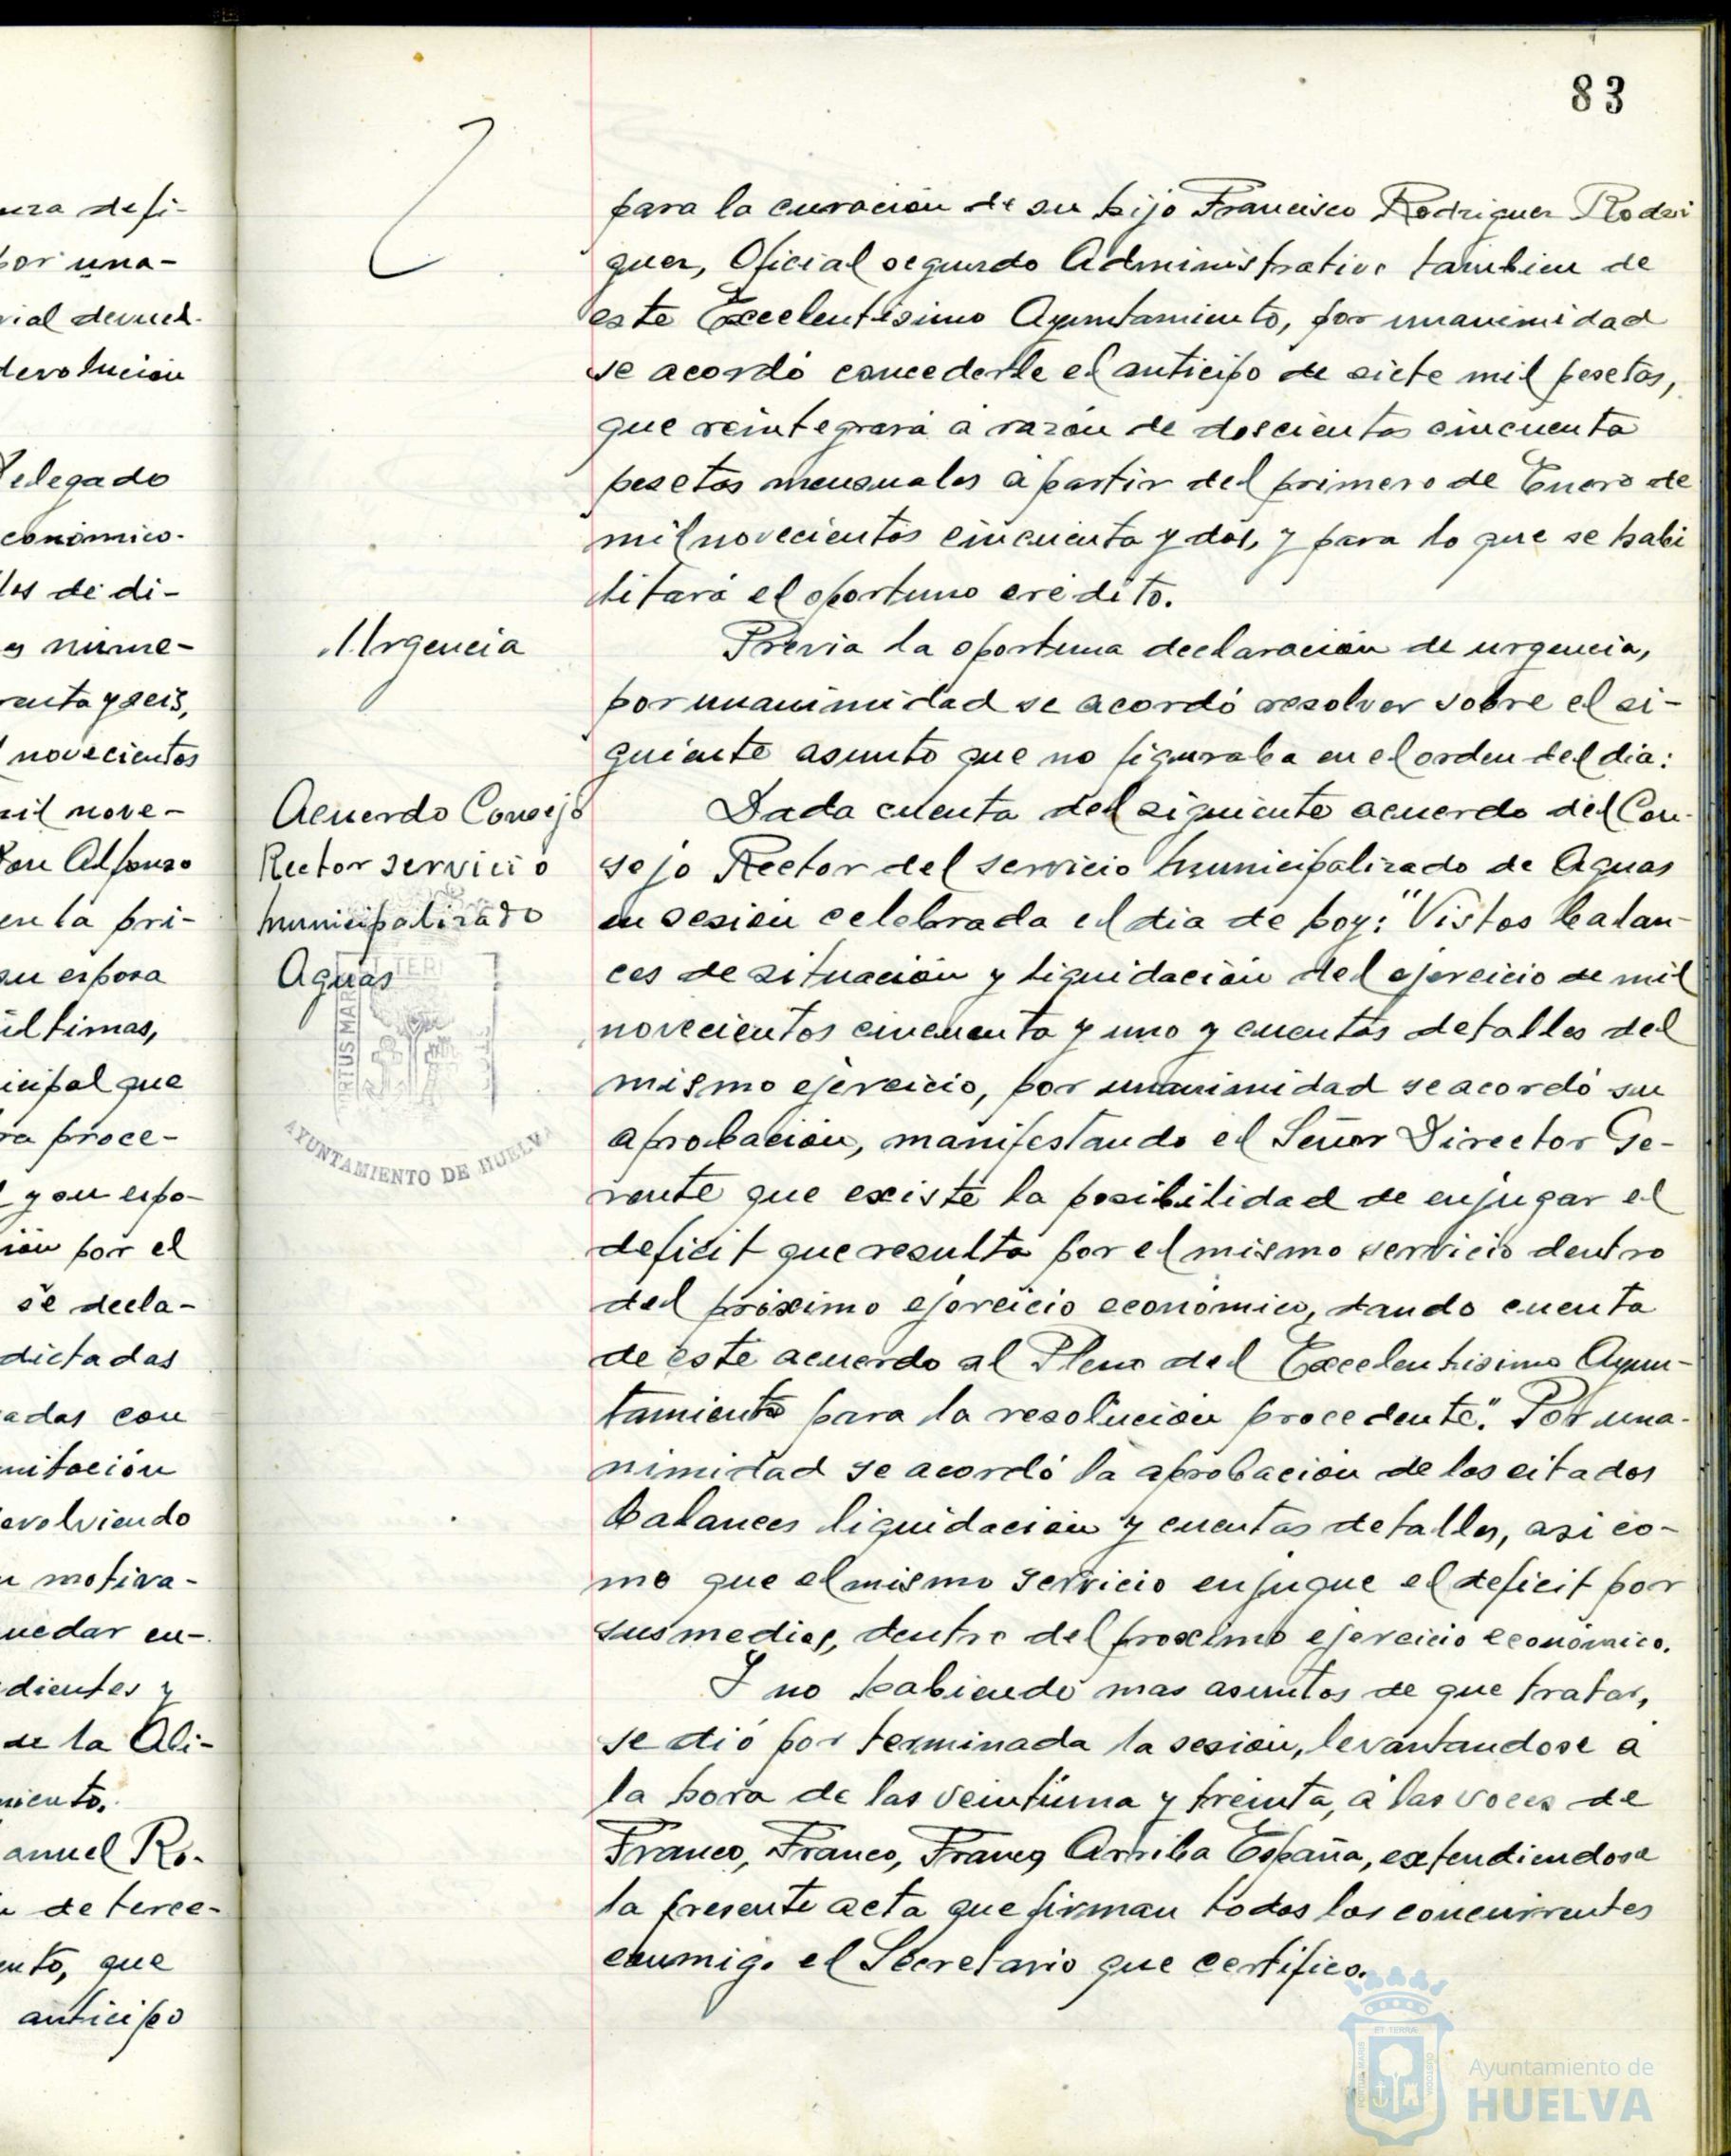 83
ura defi-
por una-
rial devuel-
devolución
Delegado
conómico.
los de di-
es nume-
renta y seis,
l novecientos
mil nove-
Don Alfonso
en la pri-
su esposa
últimas,
icipal que
ra proce-
l y su espo-
ión por el
se decla-
dictadas
adas con
mitación
evolviendo
u motiva-
uedar en-
dientes y
de la Ali-
miento.
anuel Ro-
de terce-
nto, que
anticipo
para la curación de su hijo Francisco Rodriguez Rodri
guez, Oficial segundo Administrativo tambien de
este Excelentísimo Ayuntamiento, por unanimidad
se acordó concederle el anticipo de siete mil pesetas,
que reintegrará á razón de doscientas cincuenta
pesetas mensuales á partir del primero de Enero de
mil novecientos cincuenta y dos, y para lo que se habi
litará el oportuno crédito.
Urgencia
Previa la oportuna declaración de urgencia,
por unanimidad se acordó resolver sobre el si-
guiente asunto que no figuraba en el orden del dia:
Acuerdo Consejo
Rector servicio
municipalizado
Aguas
Dada cuenta del siguiente acuerdo del Con-
sejo Rector del servicio municipalizado de Aguas
en sesión celebrada el dia de hoy: "Vistos balan-
ces de situación y liquidación del ejercicio de mil
novecientos cincuenta y uno y cuentas detalles del
mismo ejercicio, por unanimidad se acordó su
aprobación, manifestando el Señor Director Ge-
rente que existe la posibilidad de enjugar el
deficit que resulta por el mismo servicio dentro
del próximo ejercicio económico, dando cuenta
de este acuerdo al Pleno del Excelentisimo Ayun-
tamiento para la resolución procedente". Por una-
nimidad se acordó la aprobación de los citados
balances liquidación y cuentas detalles, asi co-
mo que el mismo servicio enjugue el deficit por
sus medios, dentro del proximo ejercicio económico.
Y no habiendo mas asuntos de que tratar,
se dió por terminada la sesión, levantandose á
la hora de las veintiuna y treinta, á las voces de
Franco, Franco, Franco, Arriba España, extendiendose
la presente acta que firman todos los concurrentes
conmigo el Secretario que certifico.
ET TERR
PORTUS MARIS
AYUNTAMIENTO DE HUELVA
ET TERRA
PORTUS MARIS
CUSTODIA
Ayuntamiento de
HUELVA